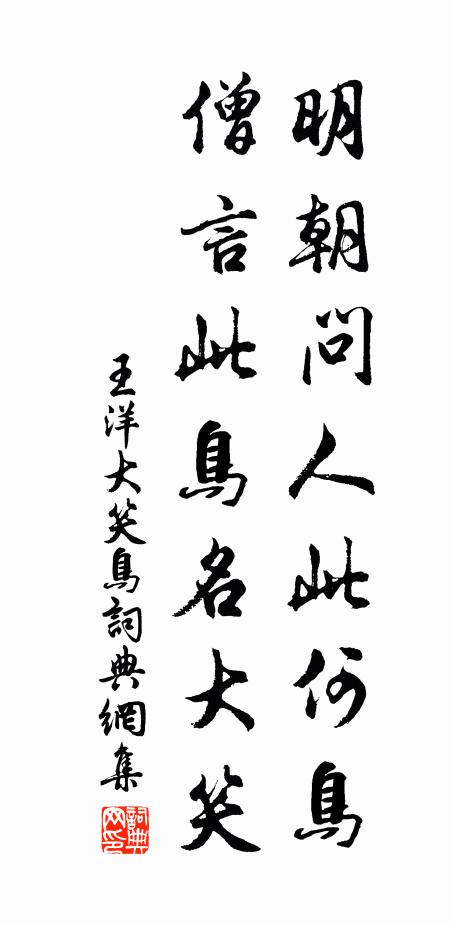 明朝問人此何鳥
僧言此鳥名大笑
王洋大笑鳥詞典網集
詞典網印